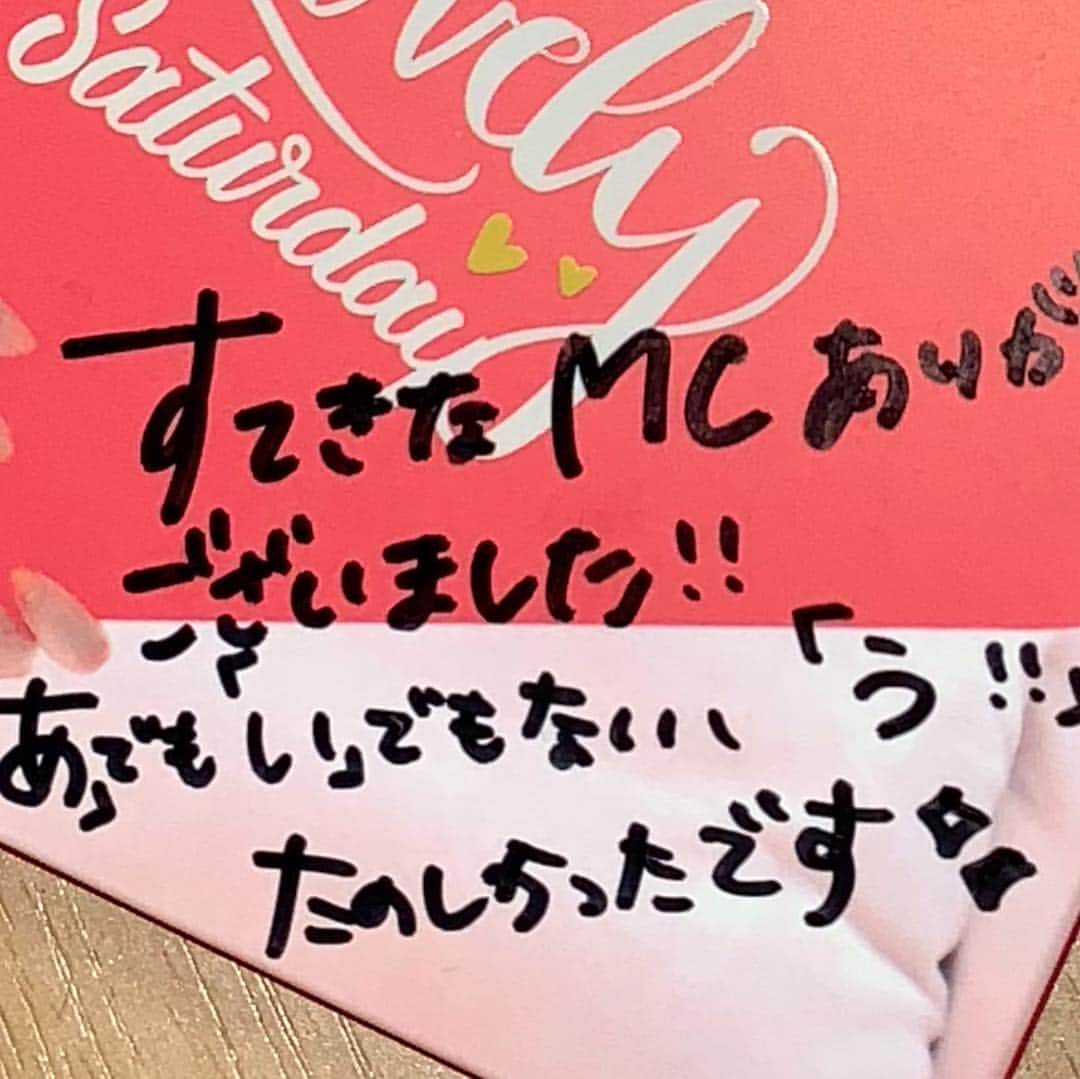 ovely
Saturday
すてきなMCありが
ございました!!
「あ」でも「い」でもない、「う!!」
たのしかったです